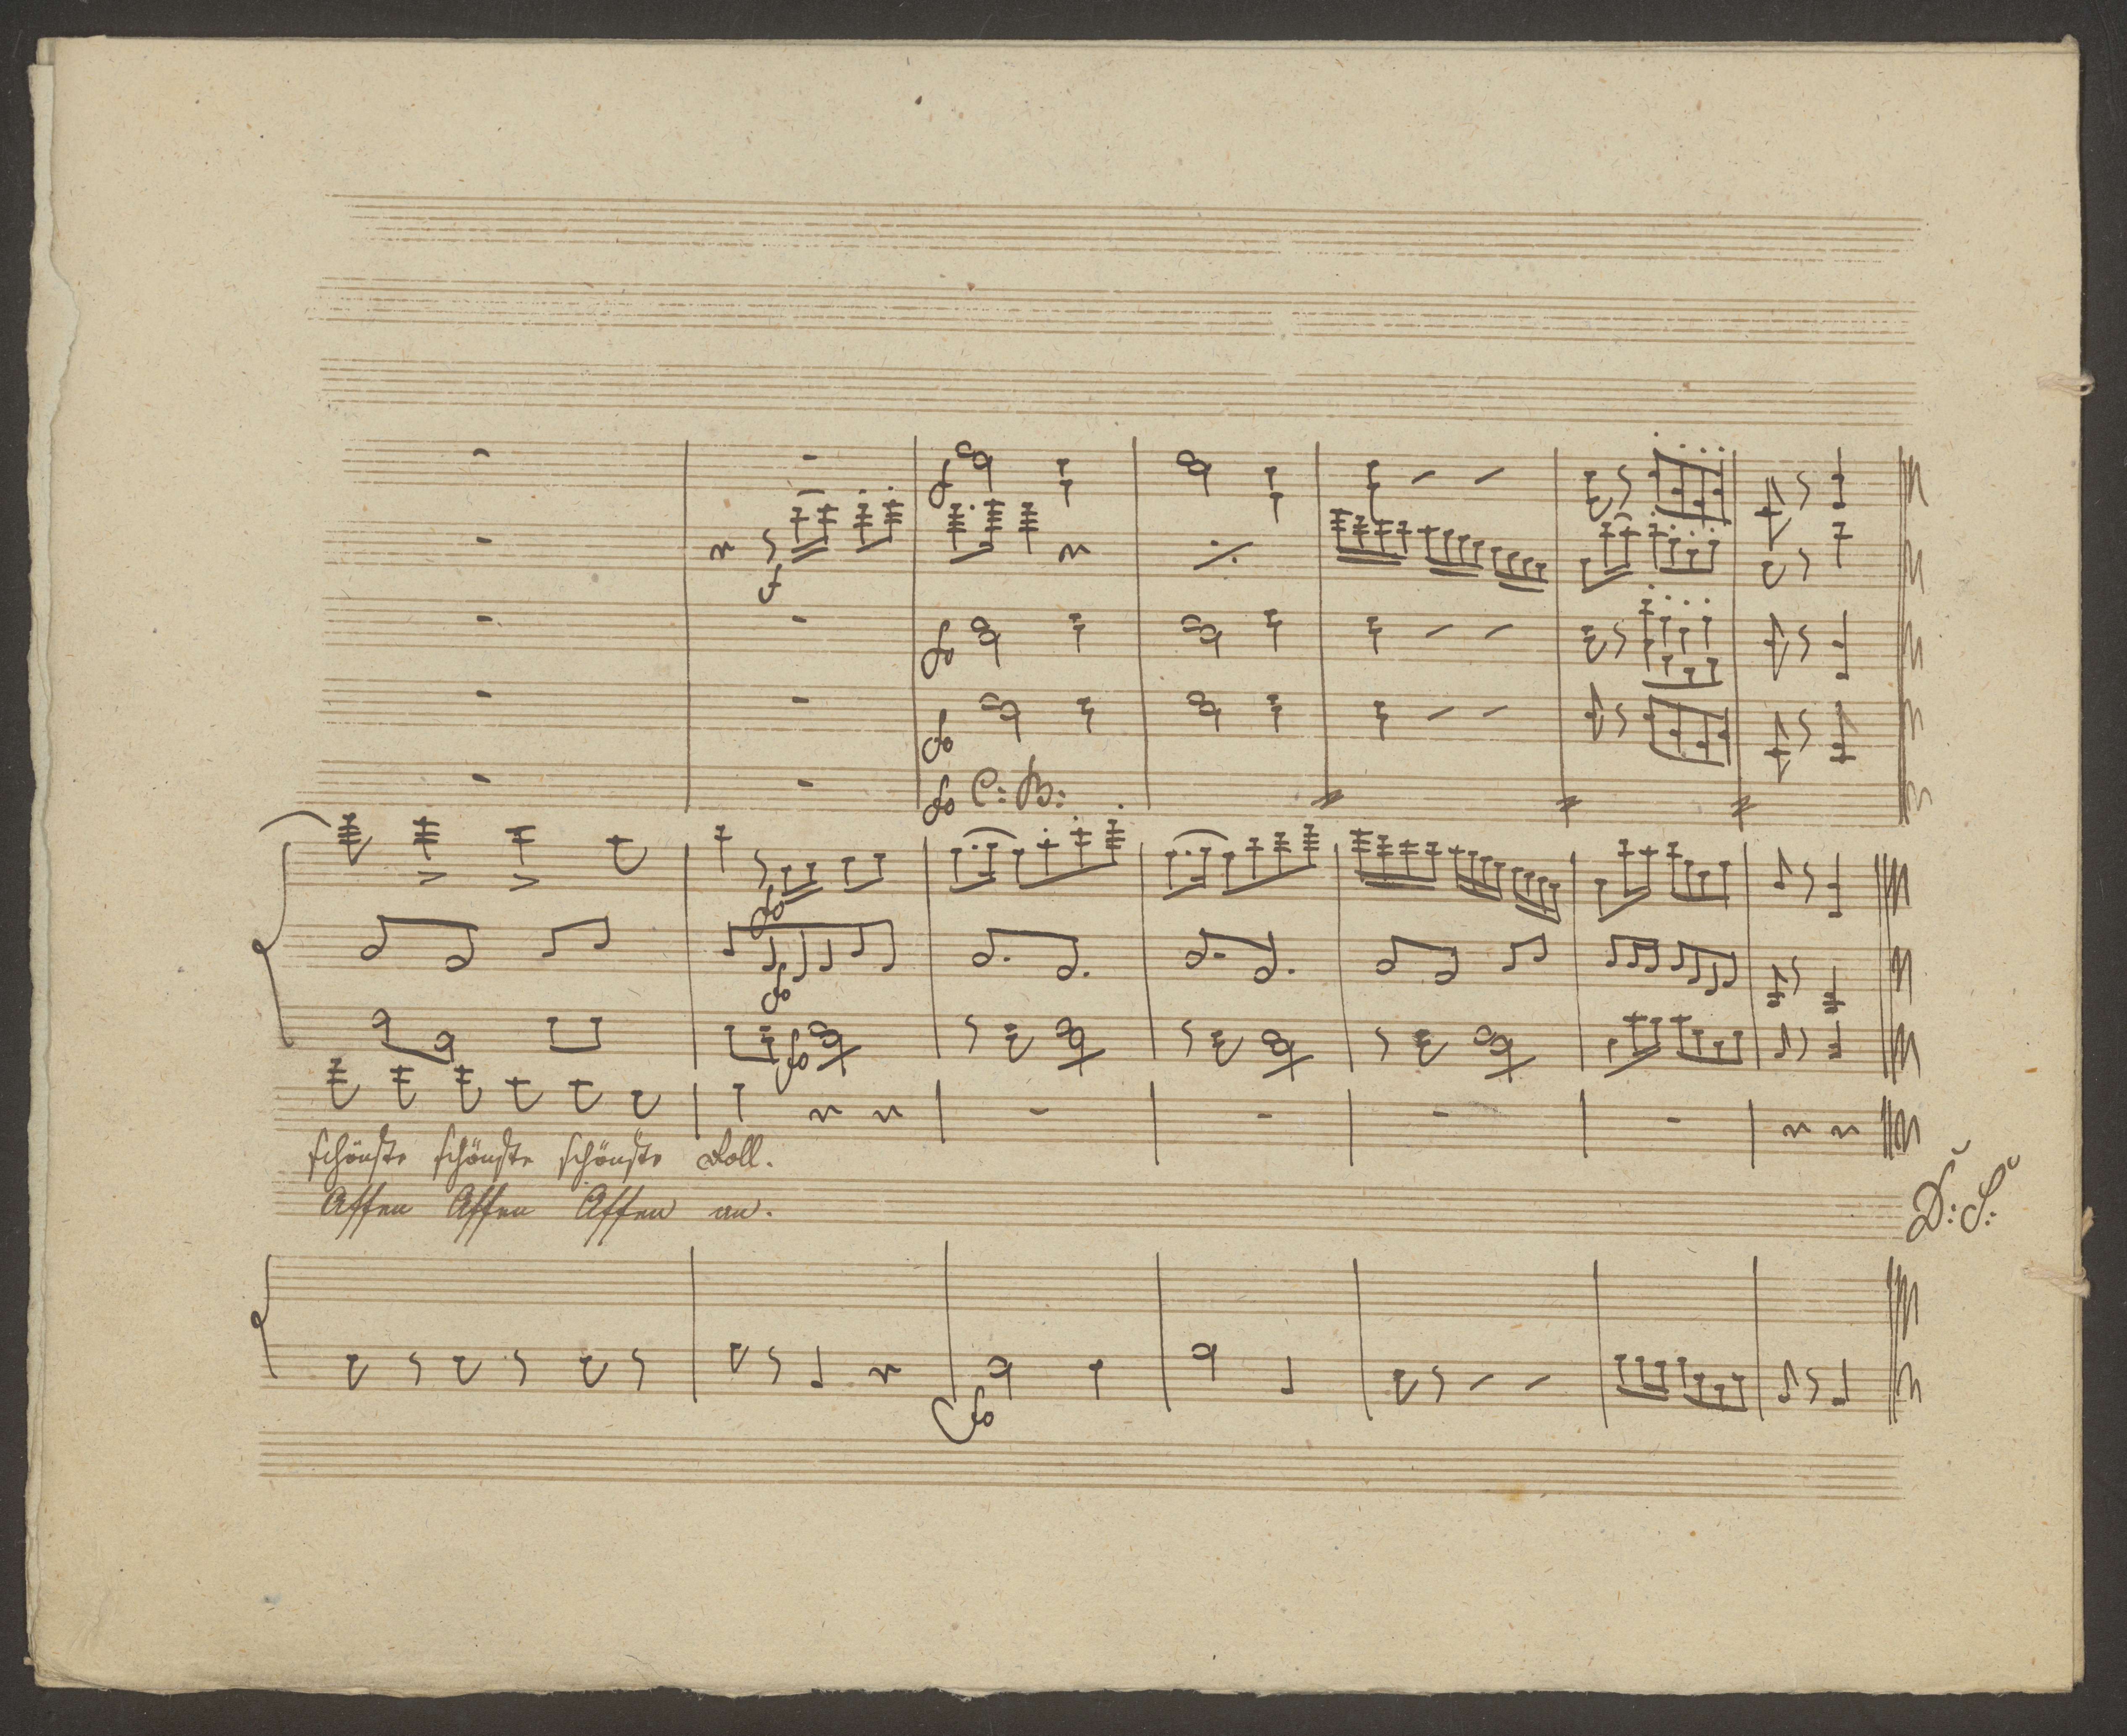 f
f
fo
fo
fo C: B:
fo
fo
fo
schönste schönste schönste Roll.
Affen Affen Affen an.
D: S:
fo